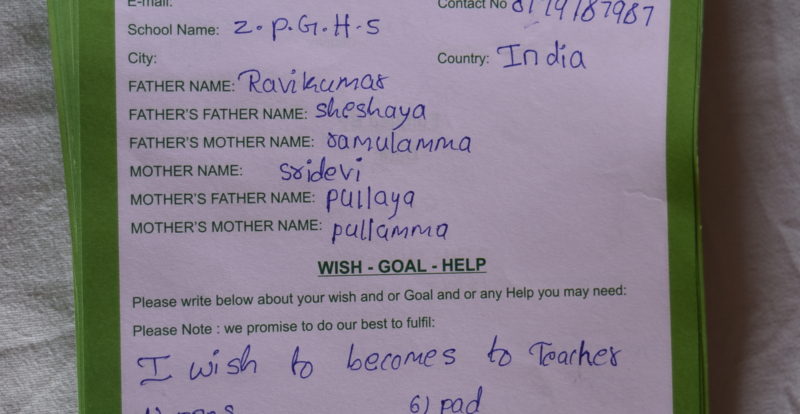 E-mail:
Contact No 8179187987
School Name: Z.P.G.H.S
City: Country: India
FATHER NAME: Ravikumar
FATHER'S FATHER NAME: sheshaya
FATHER'S MOTHER NAME: ramulamma
MOTHER NAME: sridevi
MOTHER'S FATHER NAME: pullaya
MOTHER'S MOTHER NAME: pullamma
WISH - GOAL - HELP
Please write below about your wish and or Goal and or any Help you may need:
Please Note : we promise to do our best to fulfil:
I wish to becomes to Teacher
6) pad